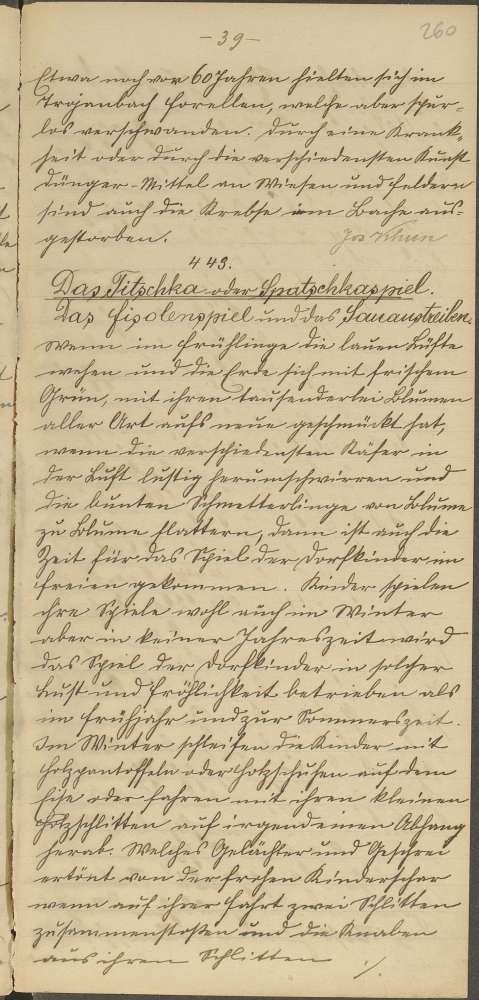 - 39 -
260
Etwa noch vor 60 Jahren hielten sich im
Trojanbach Forellen, welche aber spur-
los verschwanden. Durch eine Krank-
heit oder durch die verschiedensten Kunst
dünger-Mittel an Wiesen und Feldern
sind auch die Krebse im Bache aus-
gestorben. Jos Thum
443.
Das Titschka oder Spatschkaspiel.
Das Fisolenspiel und das Sauaustreiben.
Wenn im Frühlinge die lauen Lüfte
wehen und die Erde sich mit frischem
Grün, mit ihren tausenderlei Blumen
aller Art aufs neue geschmückt hat,
wenn die verschiedensten Käfer in
der Luft lustig herumschwirren und
die bunten Schmetterlinge von Blume
zu Blume flattern, dann ist auch die
Zeit für das Spiel der Dorfkinder im
freien gekommen. Kinder spielen
ihre Spiele wohl auch im Winter
aber in keiner Jahreszeit wird
das Spiel der Dorfkinder in solcher
Lust und Fröhlichkeit betrieben als
im Frühjahr und zur Sommerszeit.
Im Winter schleifen die Kinder mit
Holzpantoffeln oder Holzschuhen auf dem
Eise oder fahren mit ihren kleinen
Holzschlitten auf irgend einen Abhang
herab. Welches Gelächter und Geschrei
ertönt von der frohen Kinderschar
wenn auf ihrer Fahrt zwei Schlitten
zusammenstoßen und die Knaben
aus ihren Schlitten ./.